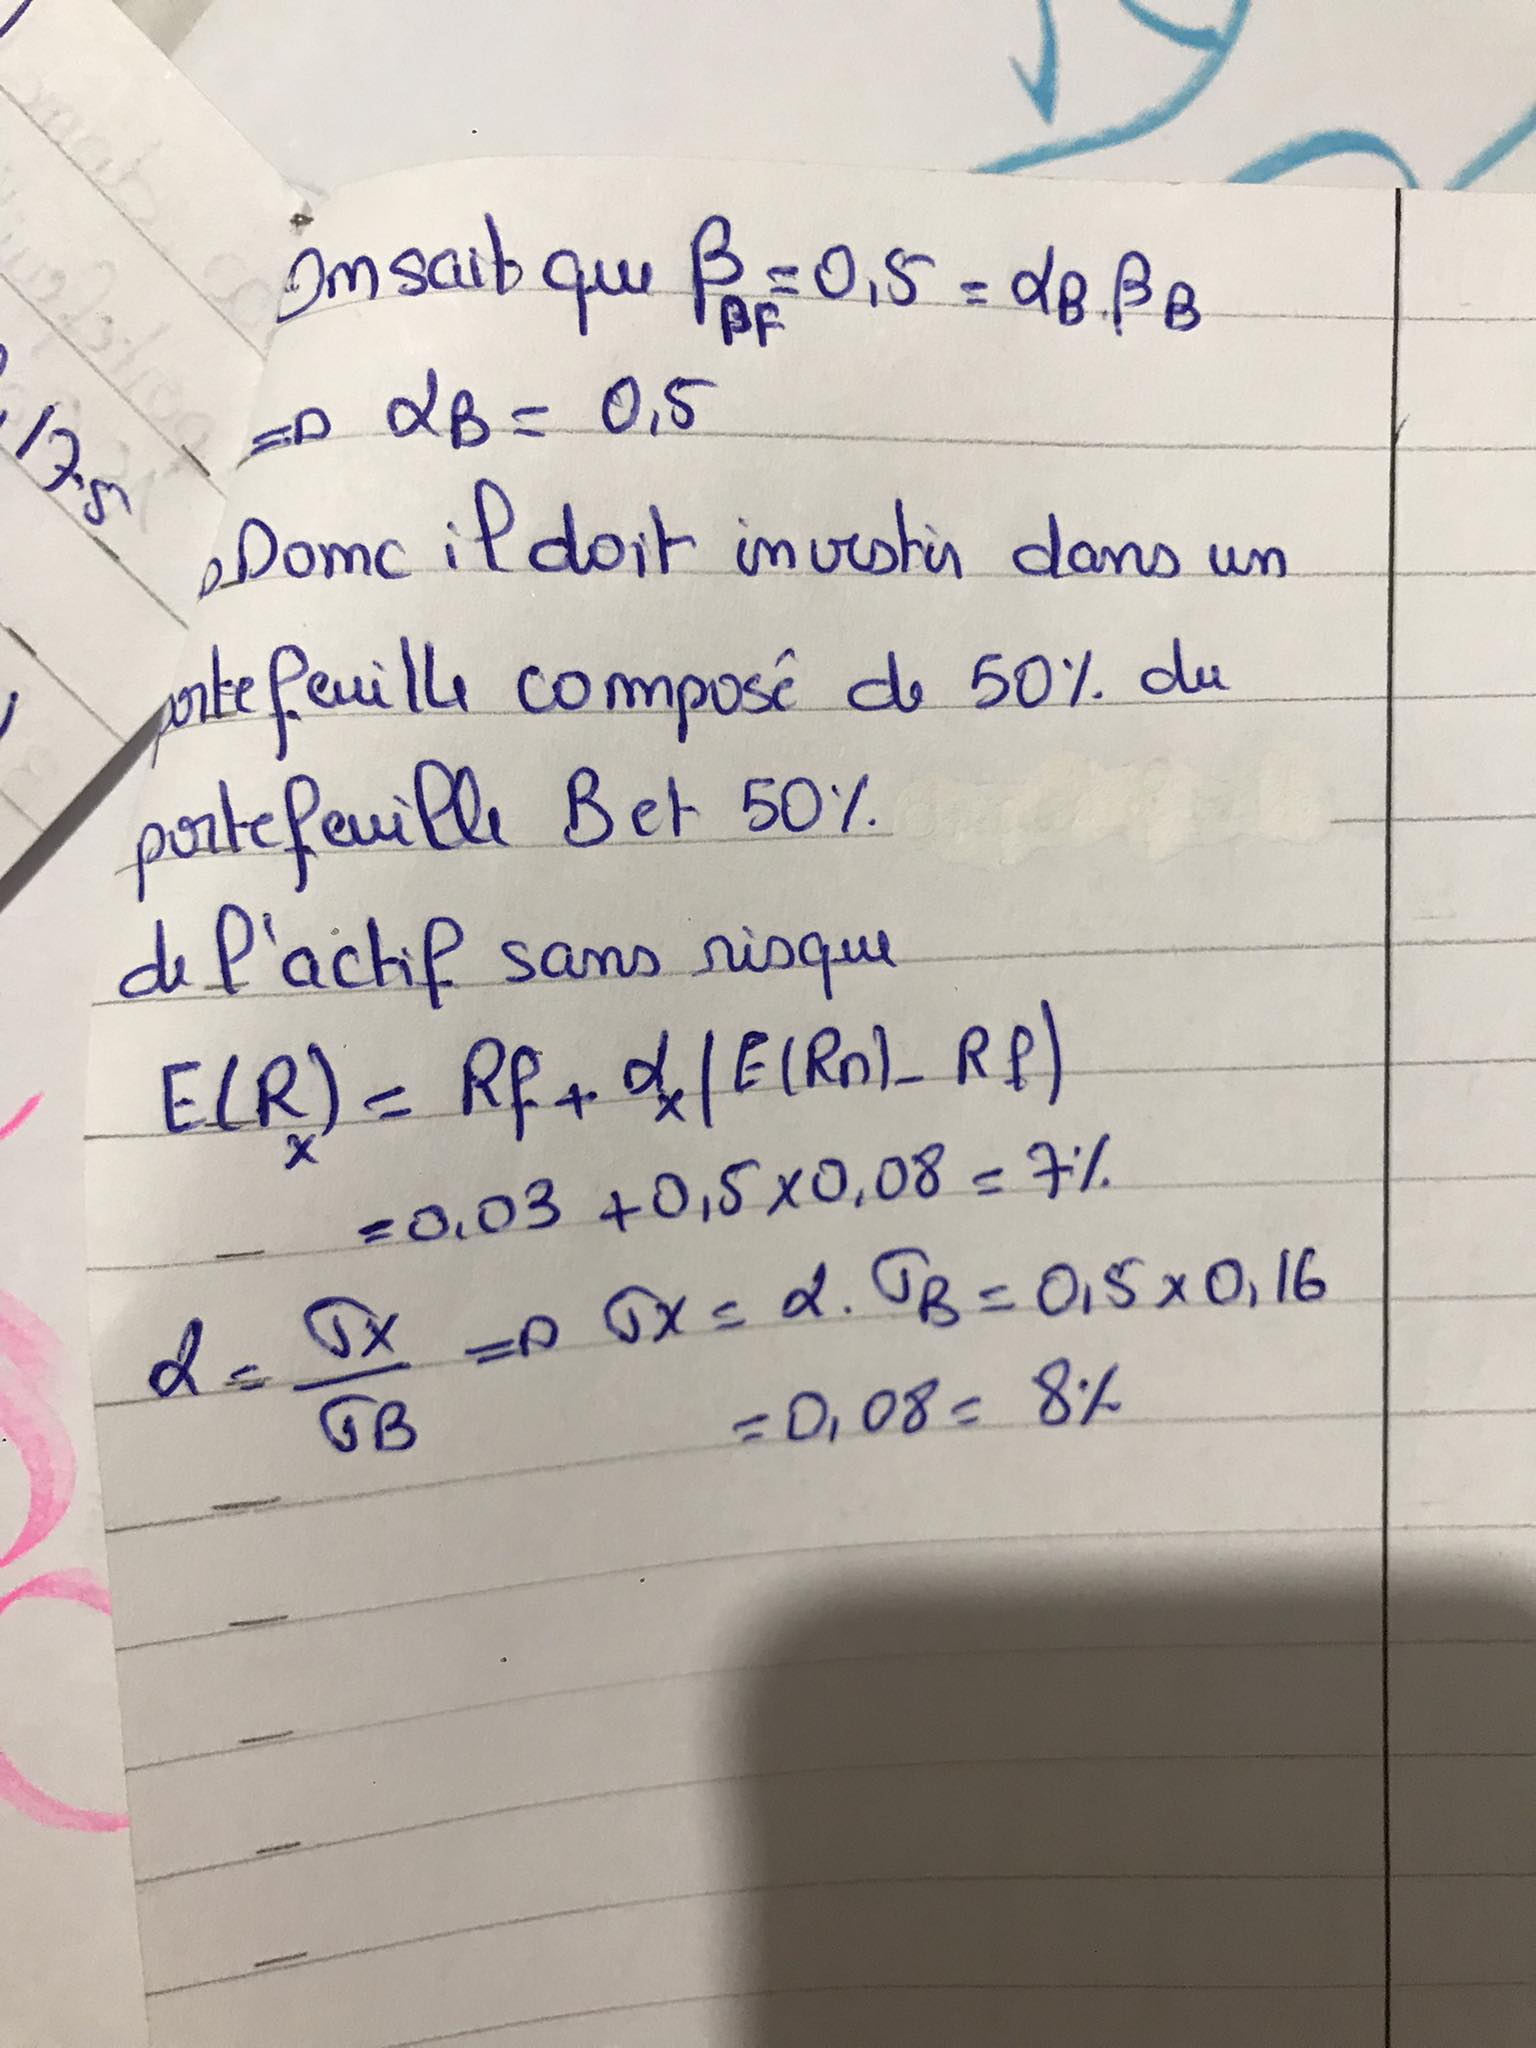 On sait que β_BF = 0,5 = αB.βB
=> αB = 0,5
Donc il doit investir dans un
portefeuille composé de 50% du
portefeuille B et 50%
de l'actif sans risque
E(R_x) = Rf + α_x (E(Rn) - Rf)
= 0,03 + 0,5 x 0,08 = 7%
α = σx / σB => σx = α . σB = 0,5 x 0,16
= 0,08 = 8%